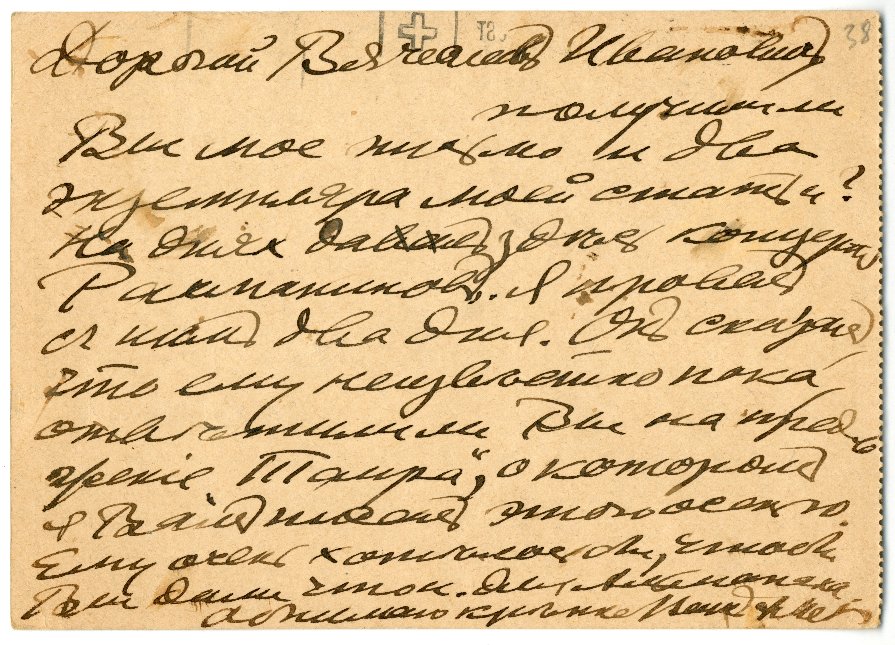 38
Дорогой Вячеславъ Ивановичъ
получили ли
Вы мое письмо и два
экземпляра моей статьи?
На дняхъ давалъ здѣсь концертъ
Рахманиновъ. Я провелъ
съ нимъ два дня. Онъ сказалъ,
что ему неизвѣстно пока
отвѣтили ли Вы на предло
женіе "Таира", о которомъ
я Вамъ писалъ этою осенью.
Ему очень хотѣлось бы, чтобы
Вы дали что н. для Альманаха
Обнимаю крѣпко